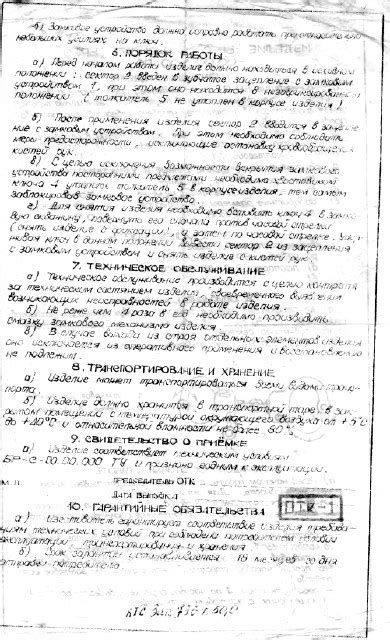 б) Замковое устройство должно исправно работать при относительно
небольших усилиях на ключ.
6. ПОРЯДОК РАБОТЫ
а) Перед началом работы изделие должно находиться в исходном
положении: сектор 2 введен в зубчатое зацепление с замковым
устройством 1, при этом оно находится в незаблокированном
положении (толкатель 5 не утоплен в корпусе изделия).
б) После применения изделия сектор 2 вводится в зацепле-
ние с замковым устройством. При этом необходимо соблюдать
меры предосторожности, исключающие остановку кровообращения
кистей рук.
в) С целью исключения возможности вскрытия замкового
устройства посторонними предметами необходимо хвостовиком
ключа 4 утопить толкатель 5 в корпусе изделия, тем самым
заблокировав замковое устройство.
г) Для снятия изделия необходимо вставить ключ 4 в замко-
вую скважину, повернуть его сначала против часовой стрелки
(снять изделие с фиксации), а затем по часовой стрелке.
ключ в данном положении вывести сектор 2 из зацепления
с замковым устройством и снять изделие с кистей рук.
7. ТЕХНИЧЕСКОЕ ОБСЛУЖИВАНИЕ
а) Техническое обслуживание производится с целью контроля
за техническим состоянием изделия, своевременного выявления
возникающих неисправностей в работе изделия.
б) Не реже чем 4 раза в год необходимо производить
смазку замкового механизма изделия.
в) В случае выхода из строя отдельных элементов изделия
оно исключается из оперативного применения и восстановлению
не подлежит.
8. ТРАНСПОРТИРОВАНИЕ И ХРАНЕНИЕ
а) Изделие может транспортироваться всеми видами транс-
порта.
б) Изделие должно храниться в транспортной таре в зак-
рытом помещении с температурой окружающего воздуха от +5°С
до +40°С и относительной влажности не более 80%.
9. СВИДЕТЕЛЬСТВО О ПРИЁМКЕ
а) Изделие соответствует техническим условиям
БР-С-00.00.000 ТУ и признано годным к эксплуатации.
М.П. ПРЕДСЕДАТЕЛЬ ОТК
ДАТА ВЫПУСКА
10. ГАРАНТИЙНЫЕ ОБЯЗАТЕЛЬСТВА
а) Изготовитель гарантирует соответствие изделия требова-
ниям технических условий при соблюдении потребителем условий
эксплуатации, транспортирования и хранения.
б) Срок гарантии устанавливается 18 месяцев со дня
отправки потребителю.